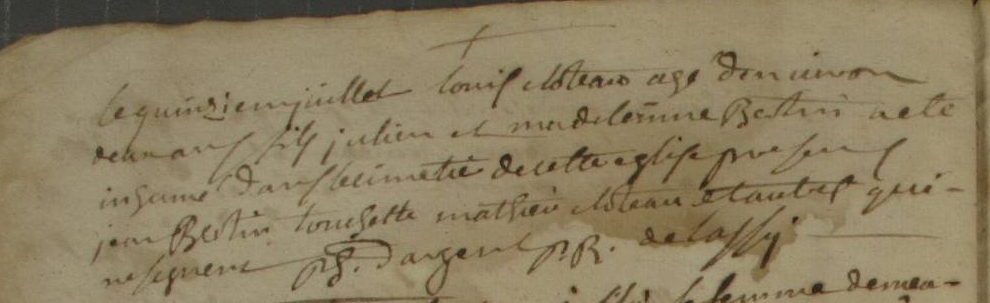 le quinziem juillet louis cloteau agé denviron
deux ans fils julien et madeleinne Bertin a eté
inhumé dans le cimetié de cette eglise presens
jean Bertin touchette mathieu cloteau et autres qui
ne signent dargent p. R. de lassy
femme